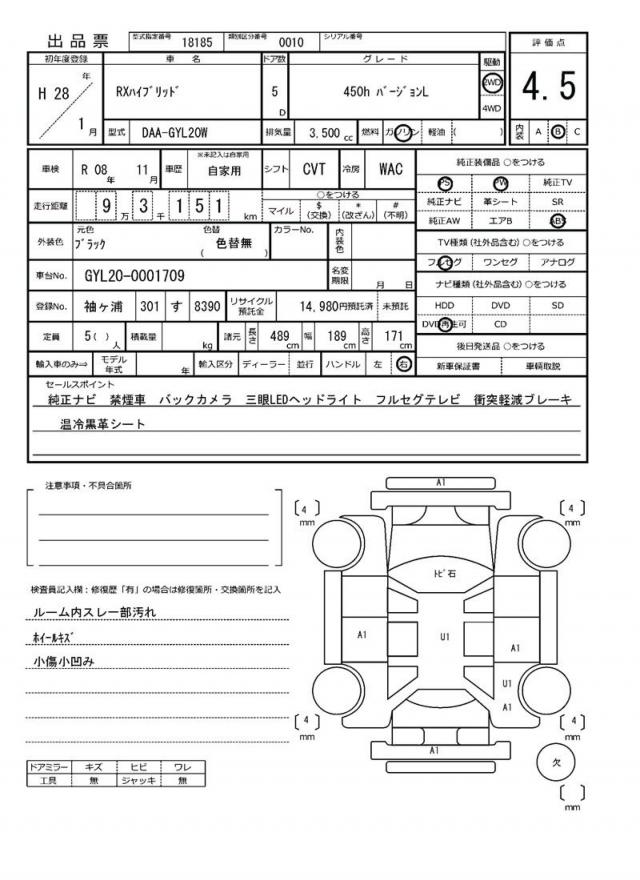 出品票 型式指定番号 18185 類別区分番号 0010 シリアル番号
評価点
4.5
内装 A B C
初年度登録 車名 ドア数 グレード 駆動
H 28 年 1 月
RXハイブリッド 5 D 450h バージョンL 2WD 4WD
型式 DAA-GYL20W 排気量 3,500 cc 燃料 ガソリン 軽油 ( )
車検 R 08 年 11 月 車歴 ※未記入は自家用 自家用 シフト CVT 冷房 WAC
走行距離 9 万 3 千 1 5 1 km ○をつける
マイル $ (交換) * (改ざん) # (不明)
外装色 元色 ブラック 色替 ( 色替無 ) カラーNo. 内装色
車台No. GYL20-0001709 名変期限 月 日
登録No. 袖ヶ浦 301 す 8390 リサイクル預託金 14,980円預託済 未預託
定員 5( ) 人 積載量 kg 諸元 長さ 489 cm 幅 189 cm 高さ 171 cm
輸入車のみ⇒ モデル年式 年 輸入区分 ディーラー 並行 ハンドル 左 右
純正装備品 ○をつける
PS PW 純正TV
純正ナビ 革シート SR
純正AW エアB ABS
TV種類 (社外品含む) ○をつける
フルセグ ワンセグ アナログ
ナビ種類 (社外品含む) ○をつける
HDD DVD SD
DVD再生可 CD
後日発送品 ○をつける
新車保証書 車輌取説
セールスポイント
純正ナビ 禁煙車 バックカメラ 三眼LEDヘッドライト フルセグテレビ 衝突軽減ブレーキ
温冷黒革シート
注意事項・不具合箇所
検査員記入欄：修復歴「有」の場合は修復箇所・交換箇所を記入
ルーム内スレ一部汚れ
ホイールキズ
小傷小凹み
ドアミラー キズ ヒビ ワレ
工具 無 ジャッキ 無
A1
[ 4 ] mm
[ 4 ] mm
トビ石
A1
U1
A1
U1
A1
[ 4 ] mm
[ 4 ] mm
A1
欠
[ ] mm